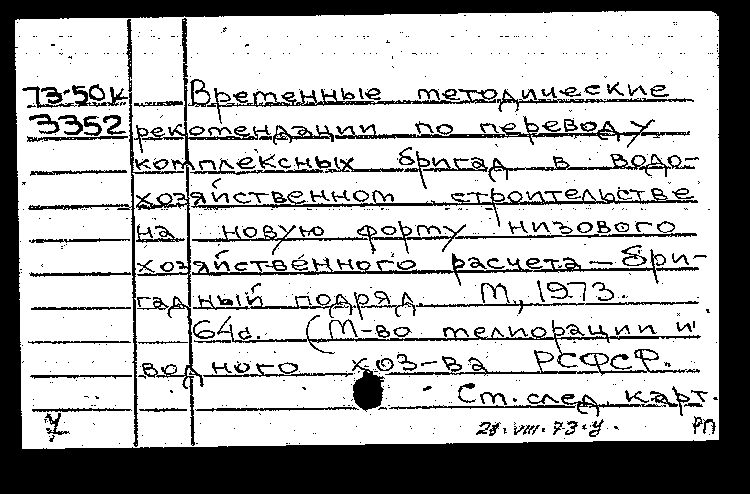 73-50к Временные методические
3352 рекомендации по переводу
комплексных бригад в водо-
хозяйственном строительстве
на новую форму низового
хозяйственного расчета — бри-
гадный подряд. М., 1973.
64с. (М-во мелиорации и
водного хоз-ва РСФСР.
Ст. след. карт.
У 28.VIII.73.У. РП